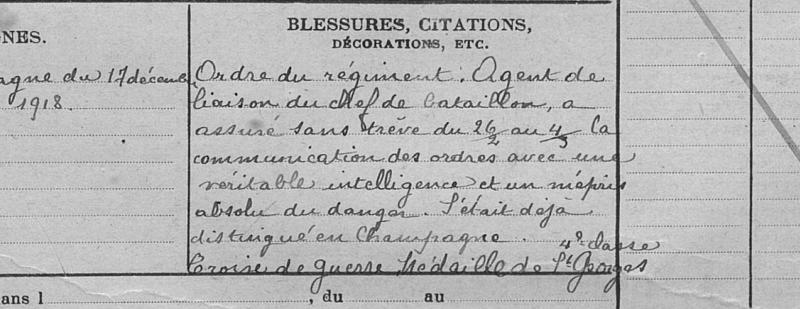 GNES.
BLESSURES, CITATIONS,
DÉCORATIONS, ETC.
agne du 17 décemb
1918.
Ordre du régiment. Agent de
liaison du chef de bataillon, a
assuré sans trêve du 26/2 au 4/3 la
communication des ordres avec une
véritable intelligence et un mépris
absolu du danger. S'était déjà
distingué en Champagne. 4e classe
Croix de guerre Médaille de St Georges
ans l , du au